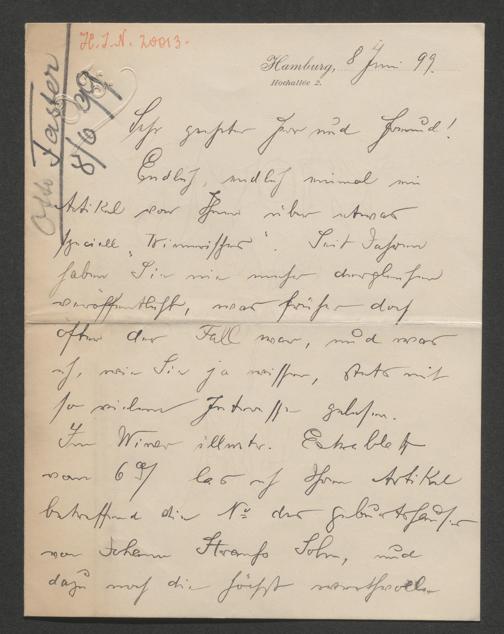 H.I.N. 20013.
Otto Faster
8/6 99
Hamburg, 8 Juni 99.
Hochallée 2.
Sehr geehrter Herr und Freund!
Endlich, endlich einmal ein
Artikel von Ihnen über etwas
speciell „Wienerisches". Seit Jahren
haben Sie nie mehr dergleichen
veröffentlicht, was früher doch
öfter der Fall war, und was
ich, wie Sie ja wissen, stets mit
so vielem Interesse gelesen.
Im Wiener illustr. Extrablatt
vom 6 las ich Ihren Artikel
betreffend die No des Geburtshauses
von Johann Strauß Sohn, und
dazu noch die höchst werthvollen